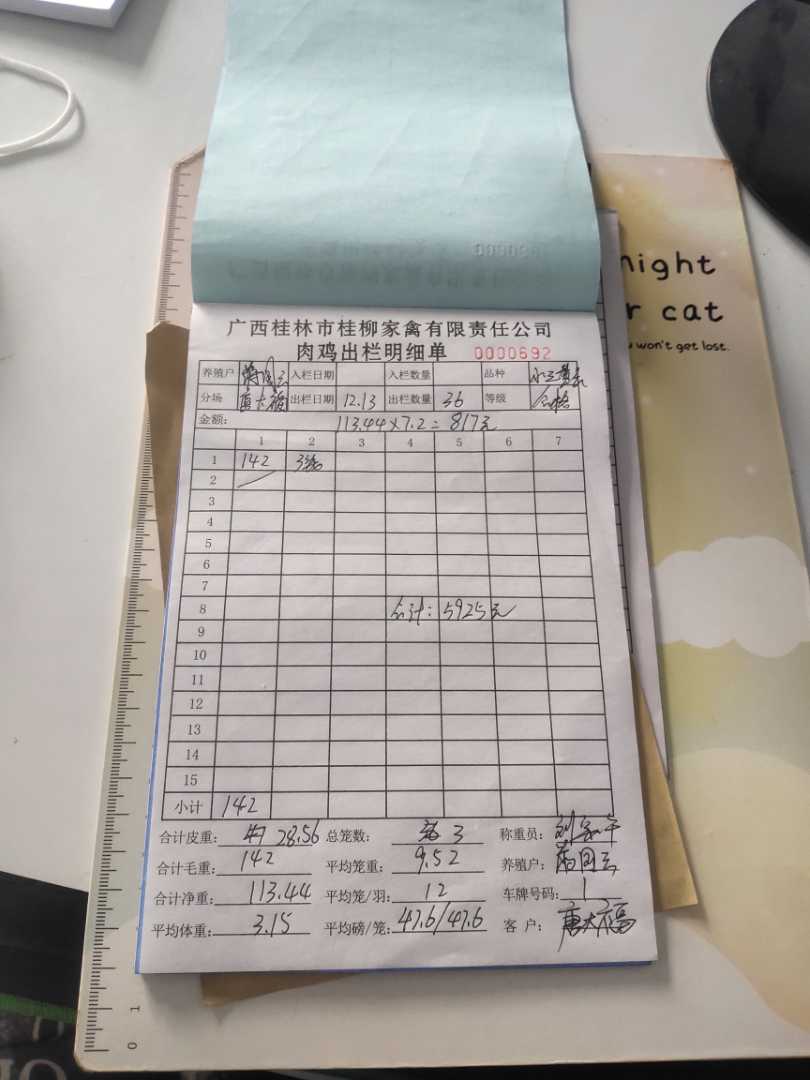 night
r cat
u won't get lost.
广西桂林市桂柳家禽有限责任公司
肉鸡出栏明细单 0000692
养殖户 入栏日期 入栏数量 品种
分场 唐大福 出栏日期 12.13 出栏数量 36 等级 合格
金额: 113.44×7.2=817元
1 2 3 4 5 6 7
1 142 3笼
2
3
4
5
6
7
8 合计:5925元
9
10
11
12
13
14
15
小计 142
合计皮重: 28.56 总笼数: 3 称重员:
合计毛重: 142 平均笼重: 9.52 养殖户:
合计净重: 113.44 平均笼/羽: 12 车牌号码: 1
平均体重: 3.15 平均磅/笼: 47.6/47.6 客户: 唐大福